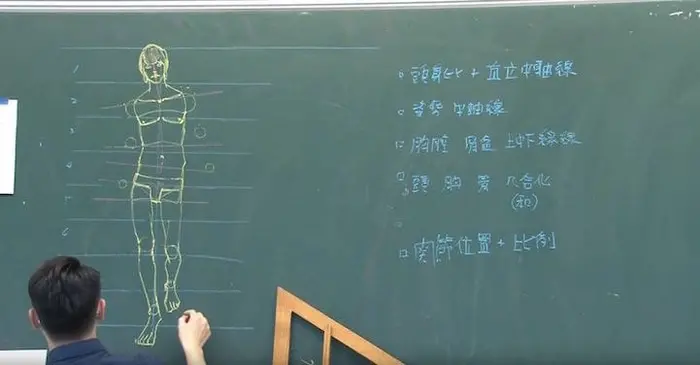 1
2
3
4
5
6
□ 頭身比 + 直立中軸線
□ 姿勢 中軸線
□ 胸腔 骨盆 上下緣線
□ 頭 胸 骨 八合化
(和)
□ 關節位置 + 比例